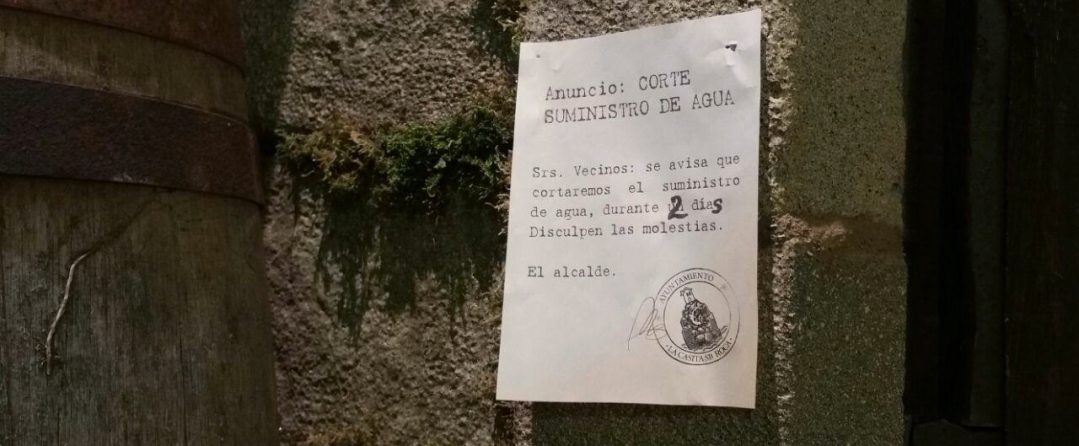 Anuncio: CORTE
SUMINISTRO DE AGUA
Srs. Vecinos: se avisa que
cortaremos el suministro
de agua, durante 2 días
Disculpen las molestias.
El alcalde.
AYUNTAMIENTO